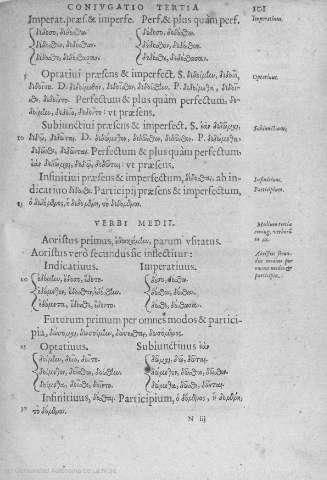 CONIVGATIO TERTIA 101
Imperat. præs. & imperfe. Perf. & plus quàm perf. Imperatiuus.
δίδοσο, διδόσθω.
δίδοσθον, διδόσθων.
δίδοσθε, διδόσθωσαν.
5 Optatiui præsens & imperfect. S. διδοίμην, διδοῖο, Optatiuus.
διδοῖτο. D. διδοίμεθον, διδοῖσθον, διδοίσθην. P. διδοίμεθα, διδοῖ-
σθε, διδοῖντο. Perfectum & plus quàm perfectum, δε-
δοίμην, δεδοῖο, δεδοῖτο: vt præsens.
Subiunctiui præsens & imperfect. S. ἐὰν διδῶμαι, Subiunctiuus.
10 διδῷ, διδῶται. D. διδώμεθον, διδῶσθον, διδῶσθον. P. διδώμεθα,
διδῶσθε, διδῶνται. Perfectum & plus quàm perfectum,
ἐὰν δεδῶμαι, δεδῷ, δεδῶται: vt præsens.
Infinitiui præsens & imperfectum, δίδοσθαι, ab in- Infinitiuus.
dicatiuo δίδοσθε. Participij præsens & imperfectum, Participium.
15 ὁ διδόμενος, ἡ διδομένη, τὸ διδόμενον.
VERBI MEDII.
Aoristus primus, ἐδωκάμην, parum vsitatus.
Aoristus verò secundus sic inflectitur:
Indicatiuus. Imperatiuus.
20 ἐδόμην, ἔδοσο, ἔδοτο.
ἐδόμεθον, ἔδοσθον, ἐδόσθην.
ἐδόμεθα, ἔδοσθε, ἔδοντο.
δόσο, δόσθω.
δόσθον, δόσθων.
δόσθε, δόσθωσαν.
Futurum primum per omnes modos & partici-
pia, δώσομαι, δωσοίμην, δώσεσθαι, δωσόμενος.
25 Optatiuus. Subiunctiuus ἐὰν
δοίμην, δοῖο, δοῖτο.
δοίμεθον, δοῖσθον, δοίσθην.
δοίμεθα, δοῖσθε, δοῖντο.
δῶμαι, δῷ, δῶται.
δώμεθον, δῶσθον, δῶσθον.
δώμεθα, δῶσθε, δῶνται.
Infinitiuus, δόσθαι. Participium, ὁ δόμενος, ἡ δομένη,
30 τὸ δόμενον.
N iij